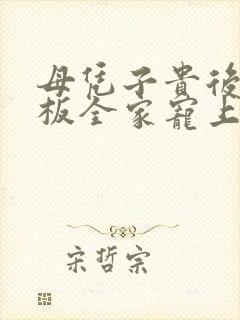 母凭子貴後
板全家寵上
宋哲宗